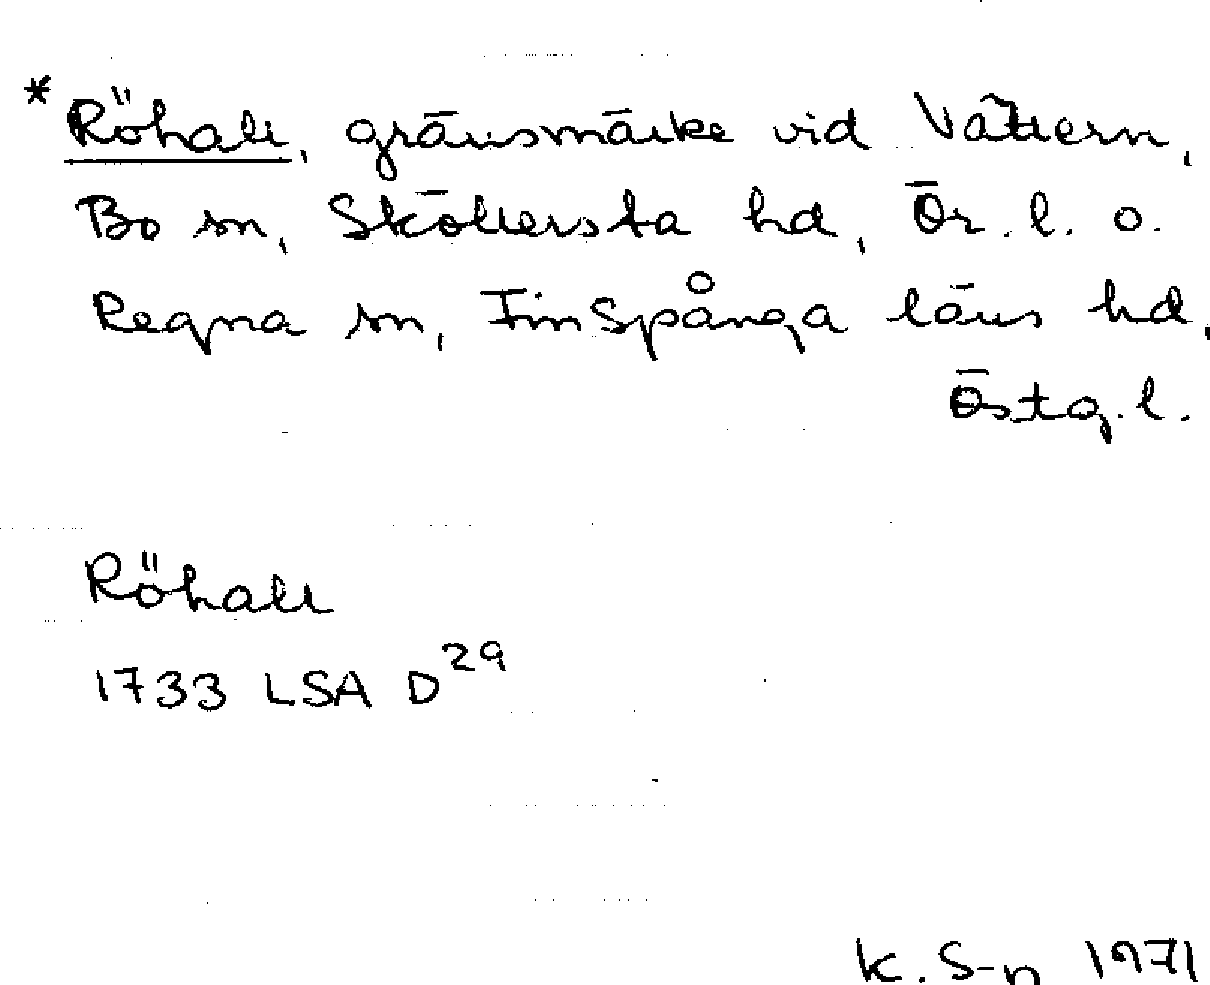 * Röhall, gränsmärke vid Vättern,
Bo sn, Sköllersta hd, Ör. l. o.
Regna sn, Finspånga läns hd,
Östg. l.
Röhall
1733 LSA D29
K. S-n 1971